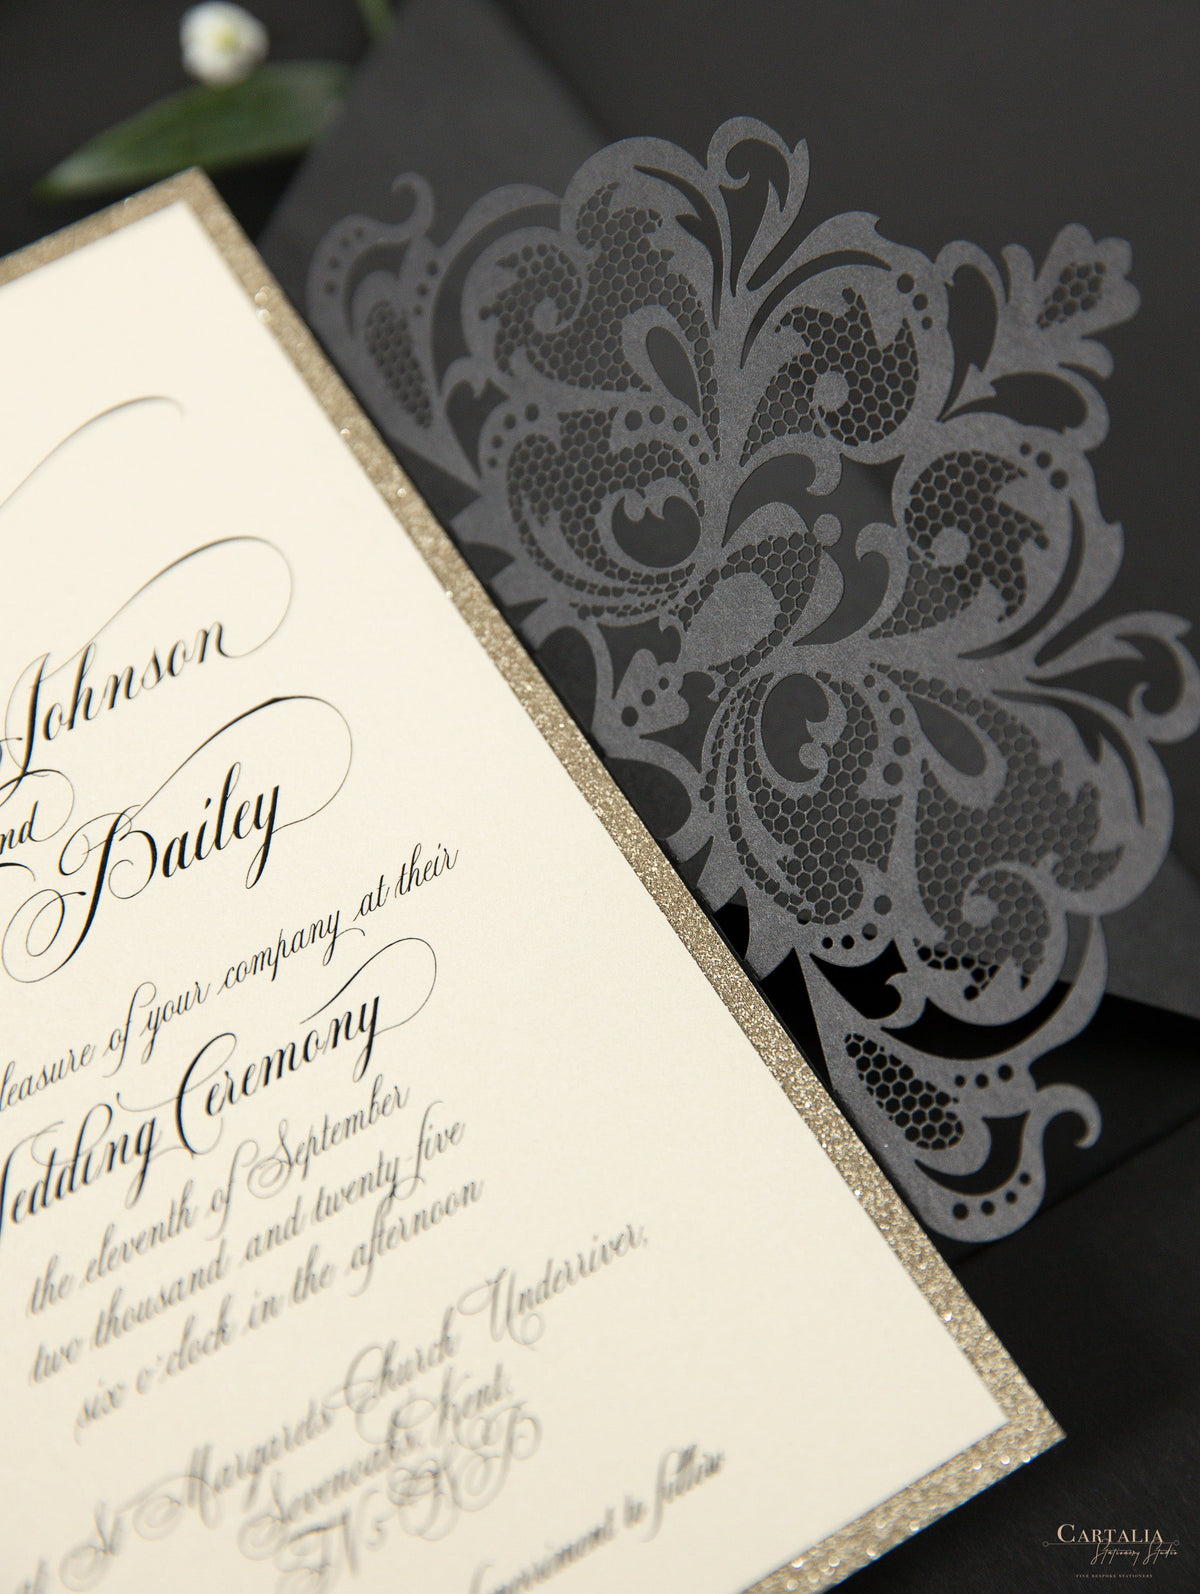 Johnson
and
Bailey
pleasure of your company at their
Wedding Ceremony
the eleventh of September
two thousand and twenty-five
six o'clock in the afternoon
at St Margarets Church Underriver,
Sevenoaks, Kent,
to follow
CARTALIA
Stationery Studio
FINE BESPOKE STATIONERY